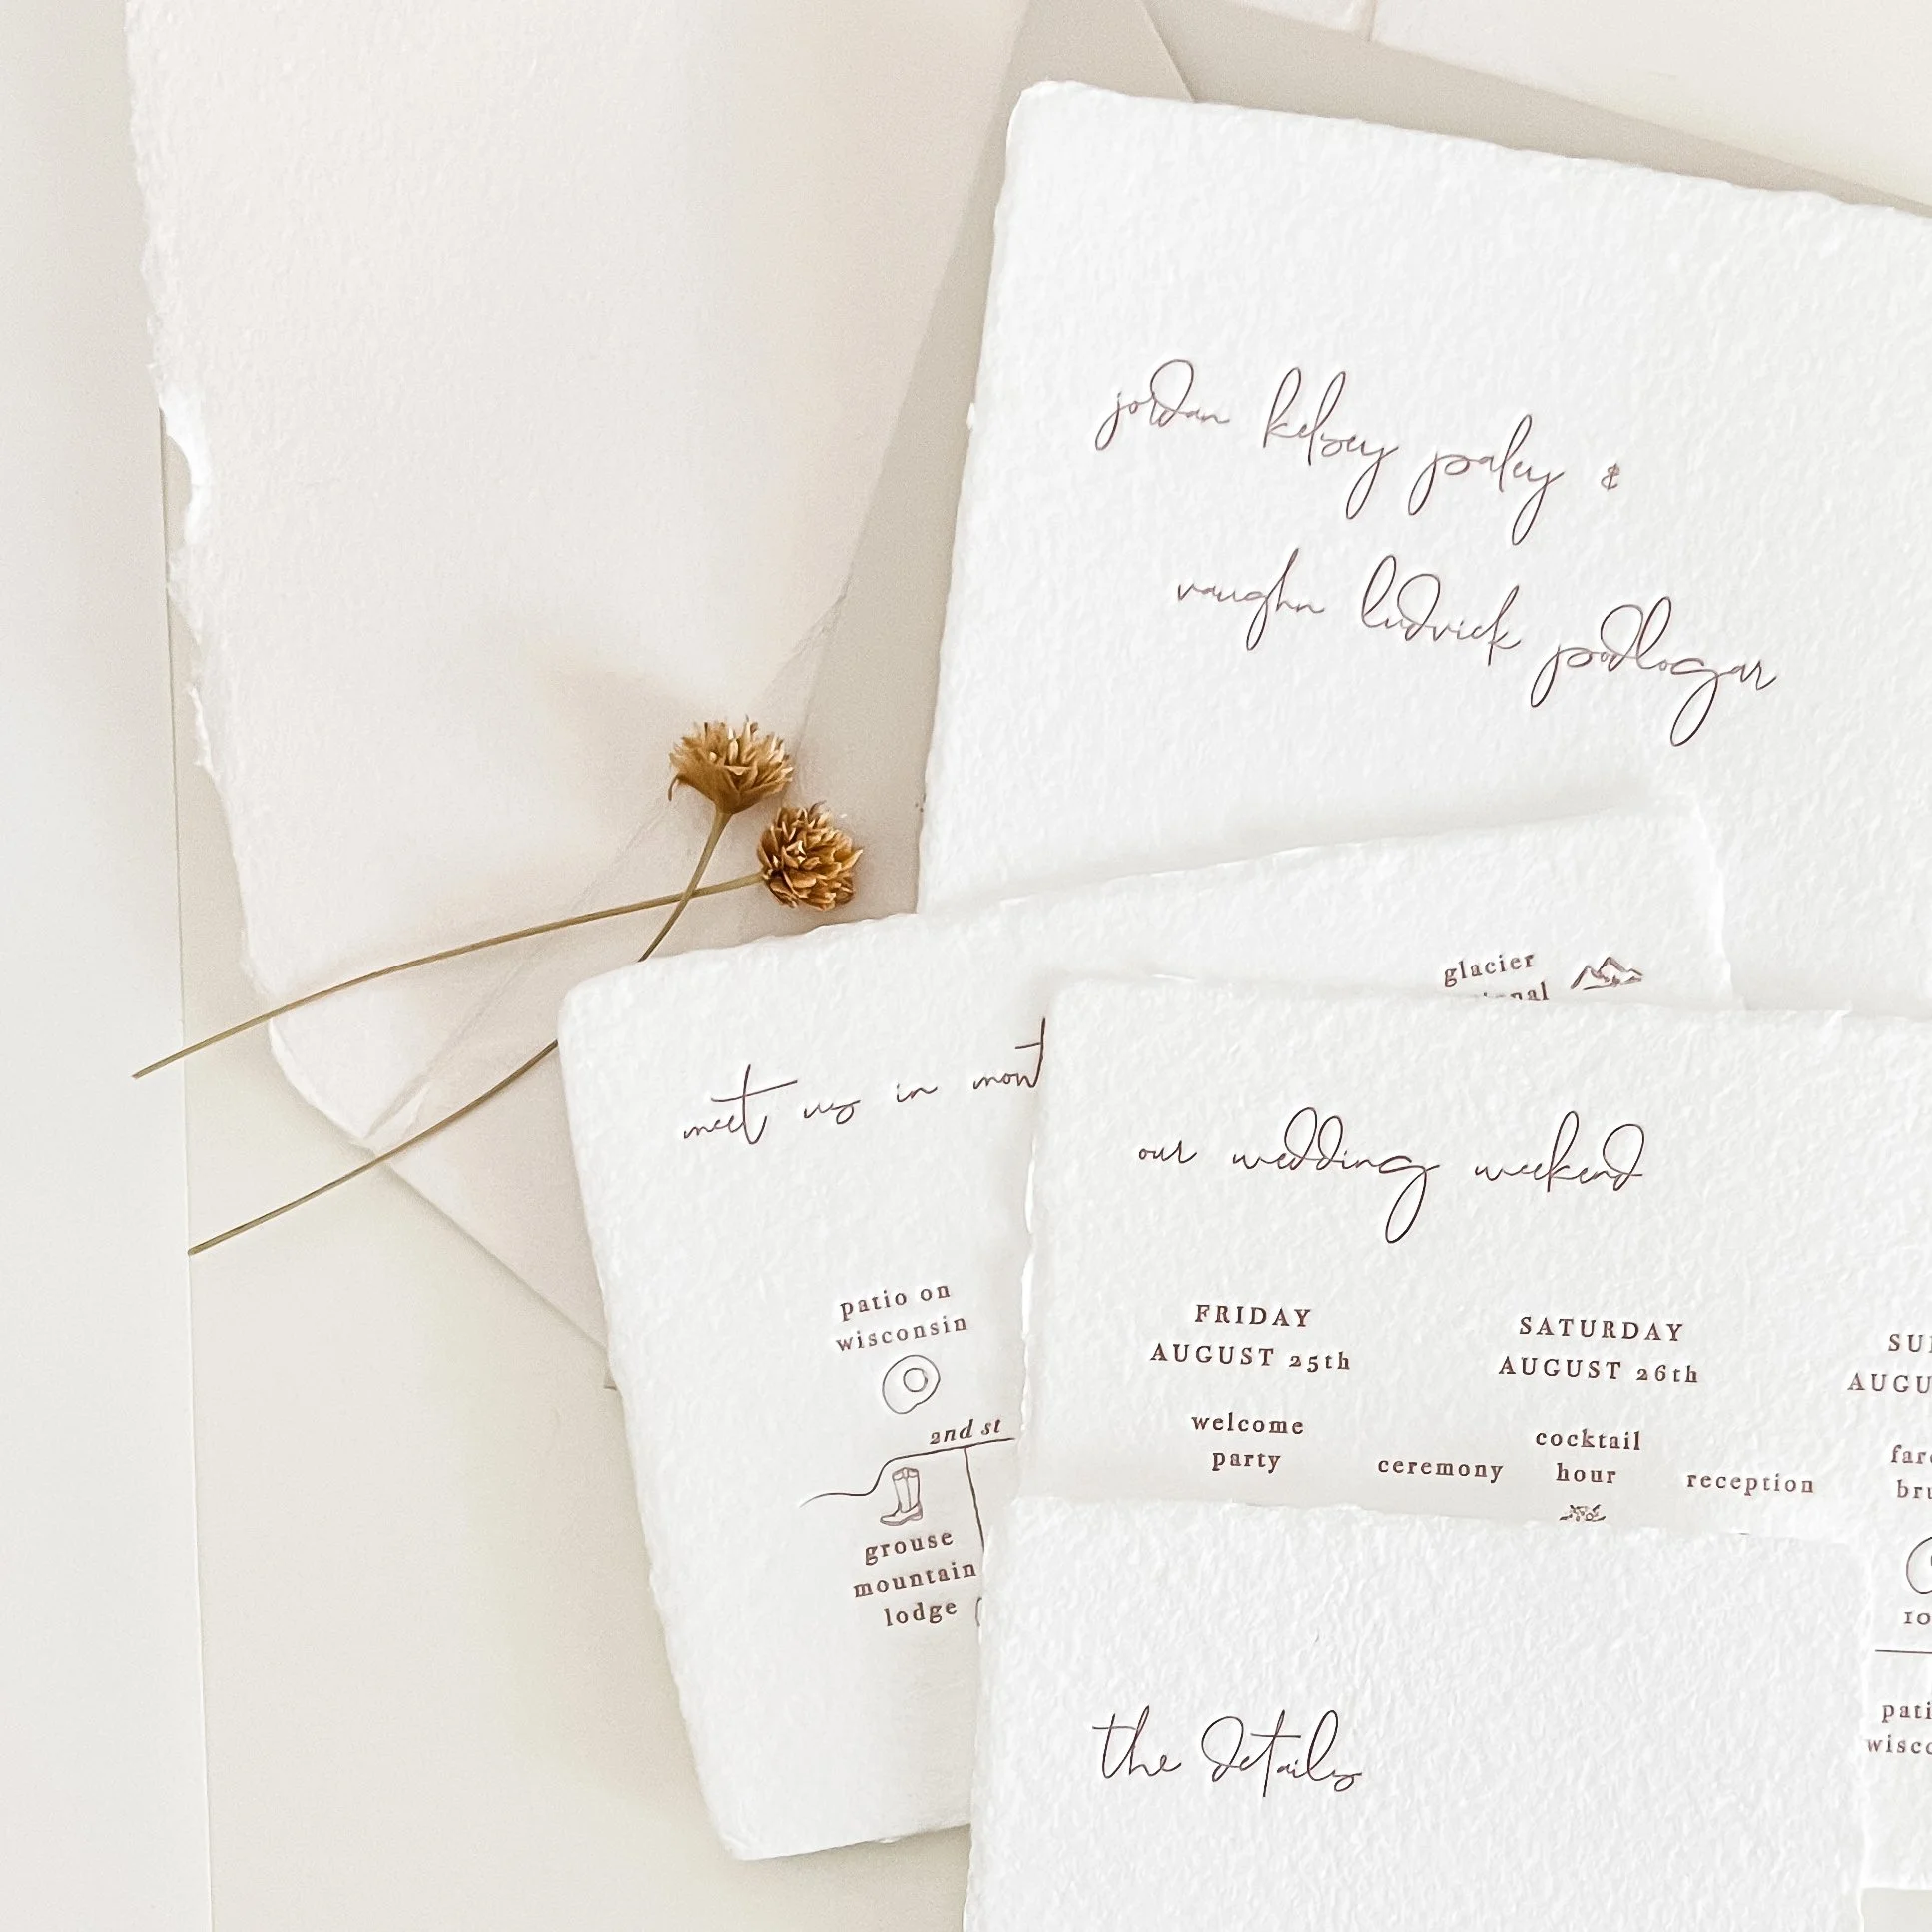 jordan kelsey paley &
vaughn ludvick podlogar
glacier
meet us in
patio on
wisconsin
2nd st
grouse
mountain
lodge
our wedding weekend
FRIDAY
AUGUST 25th
welcome
party
SATURDAY
AUGUST 26th
ceremony
cocktail
hour
reception
10
the details